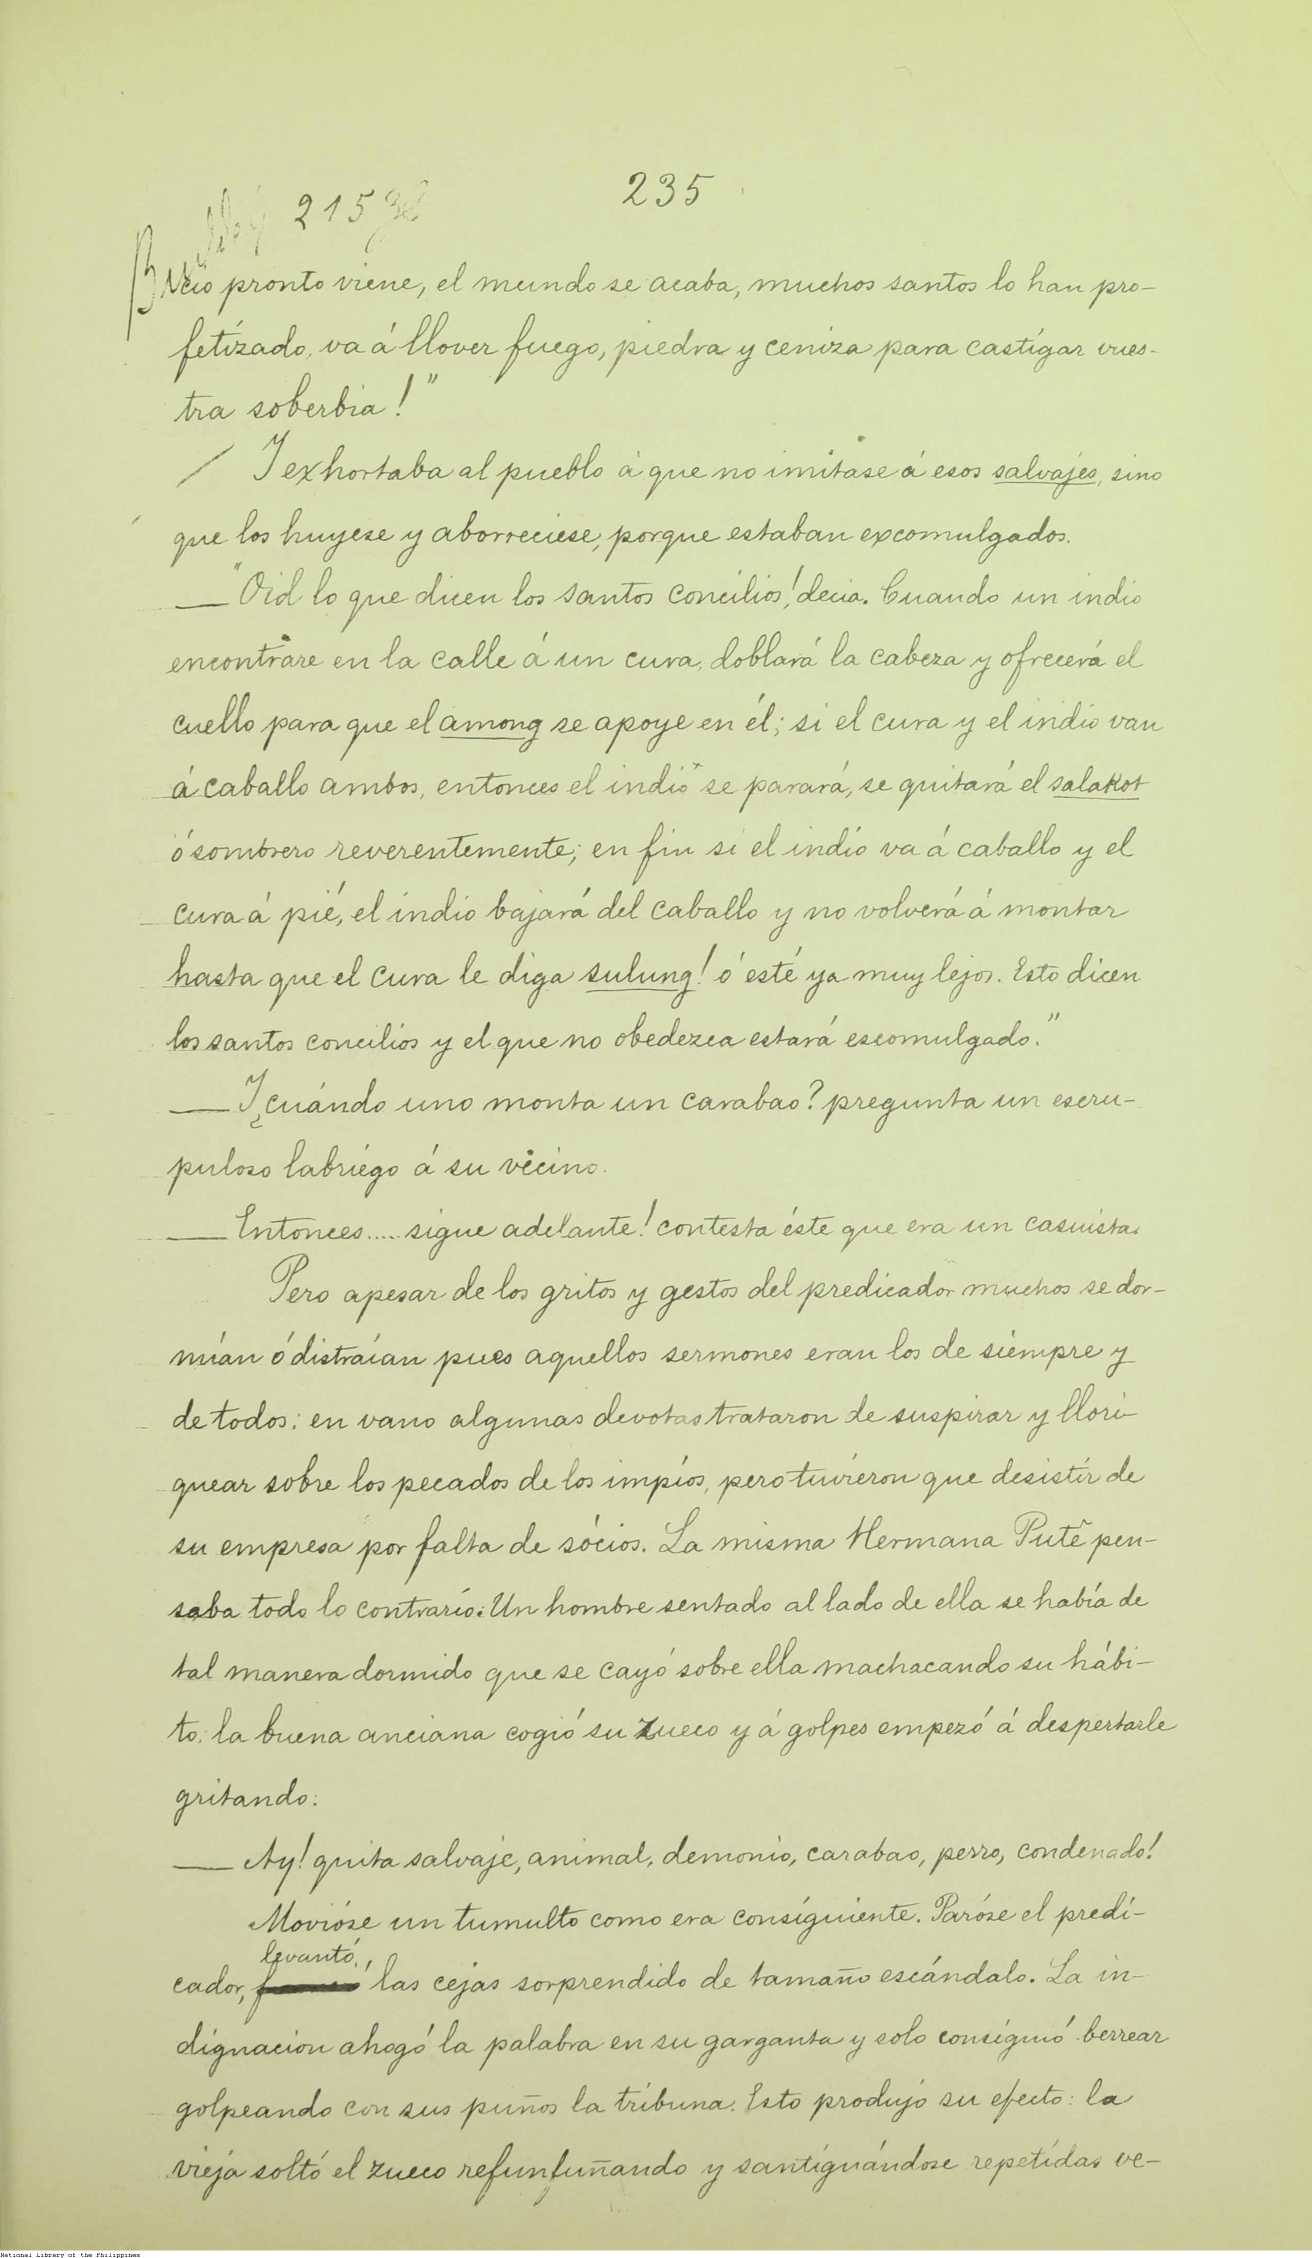 235
215
cio pronto viene, el mundo se acaba, muchos santos lo han pro-
fetizado, va á llover fuego, piedra y ceniza para castigar vues-
tra soberbia!"
Y exhortaba al pueblo á que no imitase á esos salvajes, sino
que los huyese y aborreciese, porque estaban excomulgados.
— "Oid lo que dicen los santos concilios! decia. Cuando un indio
encontrare en la calle á un cura, doblará la cabeza y ofrecerá el
cuello para que el among se apoye en él; si el cura y el indio van
á caballo ambos, entonces el indio se parará, se quitará el salakot
ó sombrero reverentemente; en fin si el indio va á caballo y el
cura á pié, el indio bajará del caballo y no volverá á montar
hasta que el cura le diga sulung! ó esté ya muy lejos. Esto dicen
los santos concilios y el que no obedezca estará escomulgado."
— Y ¿cuándo uno monta un carabao? pregunta un escru-
puloso labriego á su vecino.
— Entonces.... sigue adelante! contesta éste que era un casuista.
Pero apesar de los gritos y gestos del predicador muchos se dor-
mían ó distraían pues aquellos sermones eran los de siempre y
de todos: en vano algunas devotas trataron de suspirar y llori-
quear sobre los pecados de los impíos, pero tuvieron que desistir de
su empresa por falta de sócios. La misma Hermana Putê pen-
saba todo lo contrario. Un hombre sentado al lado de ella se había de
tal manera dormido que se cayó sobre ella machacando su hábi-
to: la buena anciana cogió su zueco y á golpes empezó á despertarle
gritando:
— Ay! quita salvaje, animal, demonio, carabao, perro, condenado!
Movióse un tumulto como era consiguiente. Paróse el predi-
levantó
cador, las cejas sorprendido de tamaño escándalo. La in-
dignacion ahogó la palabra en su garganta y solo consiguió berrear
golpeando con sus puños la tribuna. Esto produjo su efecto: la
vieja soltó el zueco refunfuñando y santiguándose repetidas ve-
National Library of the Philippines